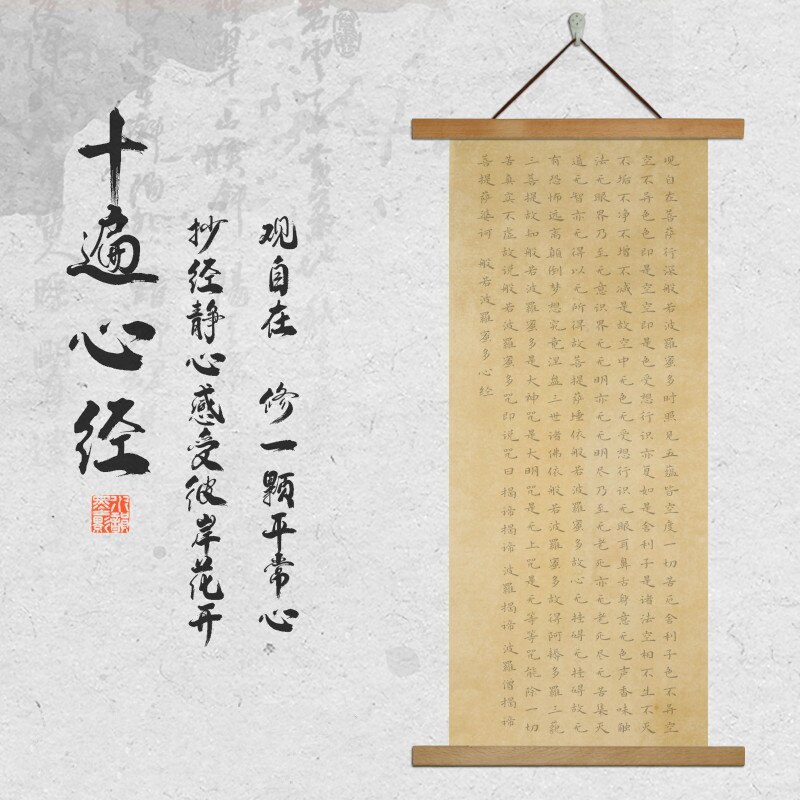 十遍心经
观自在 修一颗平常心
抄经静心感受彼岸花开
观自在菩萨行深般若波罗蜜多时照见五蕴皆空度一切苦厄舍利子色不异空
空不异色色即是空空即是色受想行识亦复如是舍利子是诸法空相不生不灭
不垢不净不增不减是故空中无色无受想行识无眼耳鼻舌身意无色声香味触
法无眼界乃至无意识界无无明亦无无明尽乃至无老死亦无老死尽无苦集灭
道无智亦无得以无所得故菩提萨埵依般若波罗蜜多故心无挂碍无挂碍故无
有恐怖远离颠倒梦想究竟涅盘三世诸佛依般若波罗蜜多故得阿耨多罗三藐
三菩提故知般若波罗蜜多是大神咒是大明咒是无上咒是无等等咒能除一切
苦真实不虚故说般若波罗蜜多咒即说咒曰 揭谛揭谛 波罗揭谛 波罗僧揭谛
菩提萨婆诃 般若波罗蜜多心经